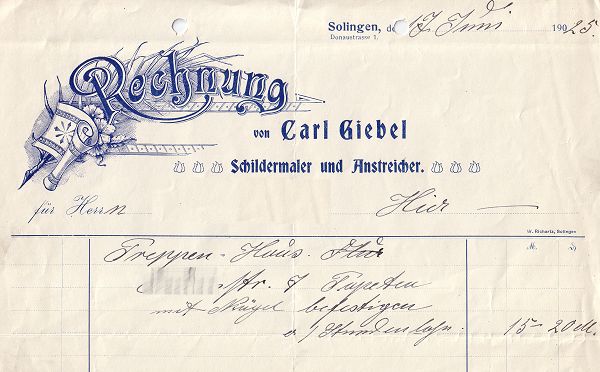 Solingen, den 17 Juni 190 25.
Donaustrasse 1.
Rechnung
von Carl Giebel
Schildermaler und Anstreicher.
für Herrn Hier
W. Richartz, Solingen
M. 
Treppen-Haus. Flur
str. 7 Tapeten
mit Nägel befestigen
u. Stundenlohn. 15-20 M.